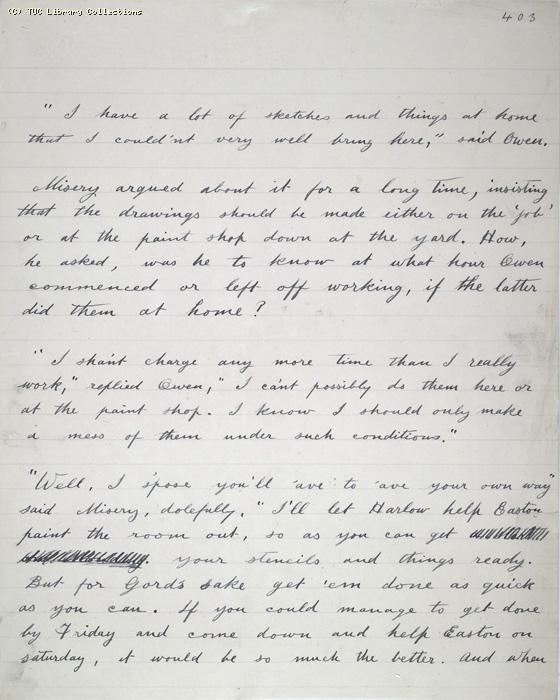 (C) TUC Library Collections
403
" I have a lot of sketches and things at home
that I could'nt very well bring here," said Owen.
Misery argued about it for a long time, insisting
that the drawings should be made either on the 'job'
or at the paint shop down at the yard. How,
he asked, was he to know at what hour Owen
commenced or left off working, if the latter
did them at home?
" I shan't charge any more time than I really
work," replied Owen, " I can't possibly do them here or
at the paint shop. I know I should only make
a mess of them under such conditions."
"Well, I s'pose you'll 'ave to 'ave your own way"
said Misery, dolefully. " I'll let Harlow help Easton
paint the room out, so as you can get
your stencils and things ready.
But for Gord's sake get 'em done as quick
as you can. If you could manage to get done
by Friday and come down and help Easton on
saturday, it would be so much the better. And when